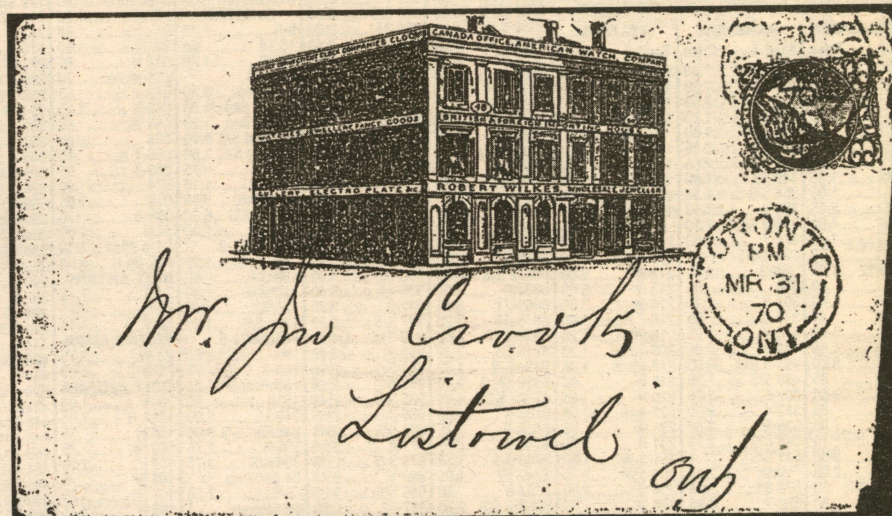 COMPANIES CLOCKS
CANADA OFFICE, AMERICAN WATCH COMPANY
WATCHES JEWELLERY FANCY GOODS
48
BRITISH & FOREIGN IMPORTING HOUSE
CUTLERY, ELECTRO PLATE &c
ROBERT WILKES, WHOLESALE JEWELLER
PM
70
TORONTO
PM
MR 31
70
ONT
Mr. Jno Crooks
Listowel
Ont